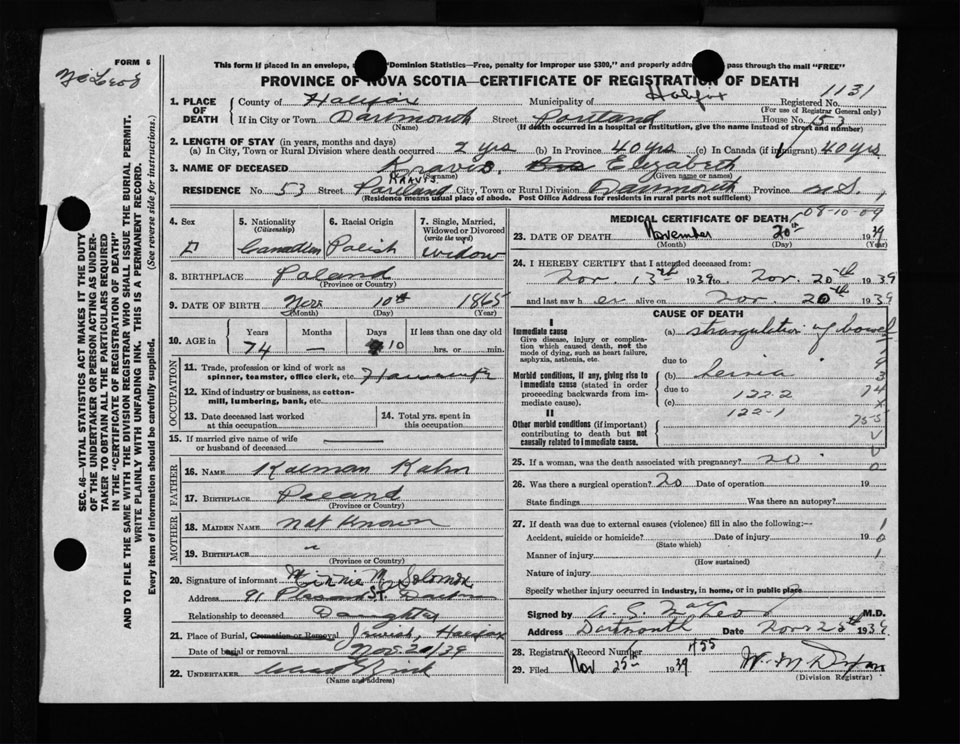 FORM 6
This form if placed in an envelope, "Dominion Statistics—Free, penalty for improper use $300," and properly address pass through the mail "FREE"
PROVINCE OF NOVA SCOTIA—CERTIFICATE OF REGISTRATION OF DEATH
1131
1. PLACE OF DEATH
County of Halifax Municipality of Halifax Registered No.
(For use of Registrar General only)
If in City or Town Dartmouth Street Portland House No. 153
(Name) (If death occurred in a hospital or institution, give the name instead of street and number)
2. LENGTH OF STAY (in years, months and days)
(a) In City, Town or Rural Division where death occurred 2 yrs (b) In Province 40 yrs (c) In Canada (if immigrant) 40 yrs
3. NAME OF DECEASED Kravis. Elizabeth
KRAVIS name) (Given name or names)
RESIDENCE No. 53 Street Portland City, Town or Rural Division Dartmouth Province N.S.
(Residence means usual place of abode. Post Office Address for residents in rural parts not sufficient)
4. Sex
5. Nationality (Citizenship) Canadian
6. Racial Origin Polish
7. Single, Married, Widowed or Divorced (write the word) Widow
8. BIRTHPLACE Poland
(Province or Country)
9. DATE OF BIRTH Nov. 10th 1865
(Month) (Day) (Year)
10. AGE in
Years Months Days If less than one day old
74 — 10 hrs. or min.
OCCUPATION
11. Trade, profession or kind of work as spinner, teamster, office clerk, etc. Housewife
12. Kind of industry or business, as cotton-mill, lumbering, bank, etc.
13. Date deceased last worked at this occupation
14. Total yrs. spent in this occupation
15. If married give name of wife or husband of deceased
FATHER
16. NAME Kalman Kahn
17. BIRTHPLACE Poland
(Province or Country)
MOTHER
18. MAIDEN NAME Not Known
19. BIRTHPLACE "
(Province or Country)
20. Signature of informant Minnie M Solomon
Address 91 Pleasant St. Dartm
Relationship to deceased Daughter
21. Place of Burial, Cremation or Removal Jewish, Halifax
Date of burial or removal Nov. 20/39
22. UNDERTAKER
(Name and address)
MEDICAL CERTIFICATE OF DEATH
08-10-09
23. DATE OF DEATH November 20th 1939
(Month) (Day) (Year)
24. I HEREBY CERTIFY that I attended deceased from:
Nov. 13th 1939 to Nov. 20th 1939
and last saw her alive on Nov. 20th 1939
CAUSE OF DEATH
I
Immediate cause
Give disease, injury or complication which caused death, not the mode of dying, such as heart failure, asphyxia, asthenia, etc.
(a) strangulation of bowel
due to
Morbid conditions, if any, giving rise to immediate cause (stated in order proceeding backwards from immediate cause).
(b) hernia
due to 122.2
(c)
122-1
II
Other morbid conditions (if important) contributing to death but not causally related to immediate cause.
25. If a woman, was the death associated with pregnancy? no
26. Was there a surgical operation? no Date of operation 19
State findings Was there an autopsy?
27. If death was due to external causes (violence) fill in also the following:—
Accident, suicide or homicide? Date of injury 19
(State which)
Manner of injury
(How sustained)
Nature of injury
Specify whether injury occurred in Industry, in home, or in public place
Signed by M.D.
Address Dartmouth Date Nov 25th 1939
28. Registrar's Record Number 455
29. Filed Nov 25th 1939
(Division Registrar)
SEC. 46—VITAL STATISTICS ACT MAKES IT THE DUTY
OF THE UNDERTAKER OR PERSON ACTING AS UNDER-
TAKER TO OBTAIN ALL THE PARTICULARS REQUIRED
IN THE "CERTIFICATE OF REGISTRATION OF DEATH"
AND TO FILE THE SAME WITH THE DIVISION REGISTRAR WHO SHALL ISSUE THE BURIAL PERMIT.
WRITE PLAINLY WITH UNFADING INK. THIS IS A PERMANENT RECORD.
Every item of information should be carefully supplied. (See reverse side for instructions.)